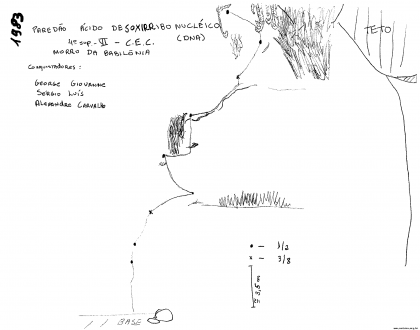 1983
PAREDÃO ÁCIDO DESOXIRRIBONUCLÉICO
(DNA)
4º sup. - VI - C.E.C.
MORRO DA BABILÔNIA
CONQUISTADORES:
GEORGE GIOVANNE
SERGIO LUÍS
ALEXANDRE CARVALHO
TETO
• - 1/2
x - 3/8
BASE